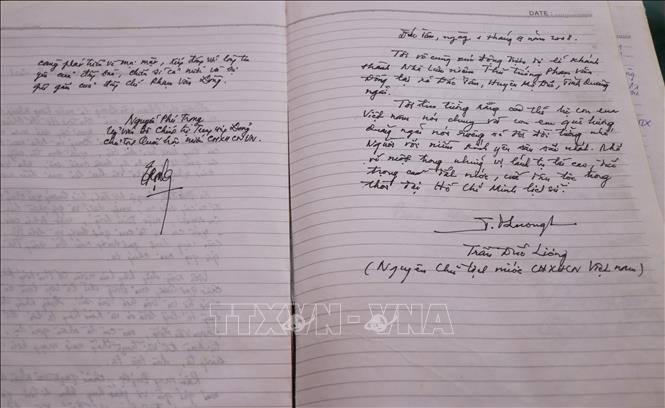 càng phát triển về mọi mặt, xứng đáng với
của đồng bào, chiến sĩ cả nước và sự
của đồng chí Phạm Văn Đồng.
Nguyễn Phú Trọng
Uỷ viên Bộ Chính trị
Chủ tịch Quốc hội nước CHXHCNVN
DATE :
Đức Tân, ngày 1 tháng 9 năm 2008.
Tôi vô cùng xúc động dự lễ khánh
thành Nhà lưu niệm Thủ tướng Phạm Văn
Đồng tại xã Đức Tân, Huyện Mộ Đức, Tỉnh Quảng
Ngãi.
Tôi tin tưởng rằng các thế hệ con em
Việt Nam nói chung và con em quê hương
Quảng Ngãi nói riêng sẽ đời đời tưởng nhớ
Người với niềm kính yêu sâu sắc nhất. Nhớ
về một trong những vị lãnh tụ
trong của đất nước, của dân tộc trong
thời đại Hồ Chí Minh lịch sử.
Trần Đức Lương
(Nguyên Chủ tịch nước CHXHCN Việt Nam)
TTXVN - VNA